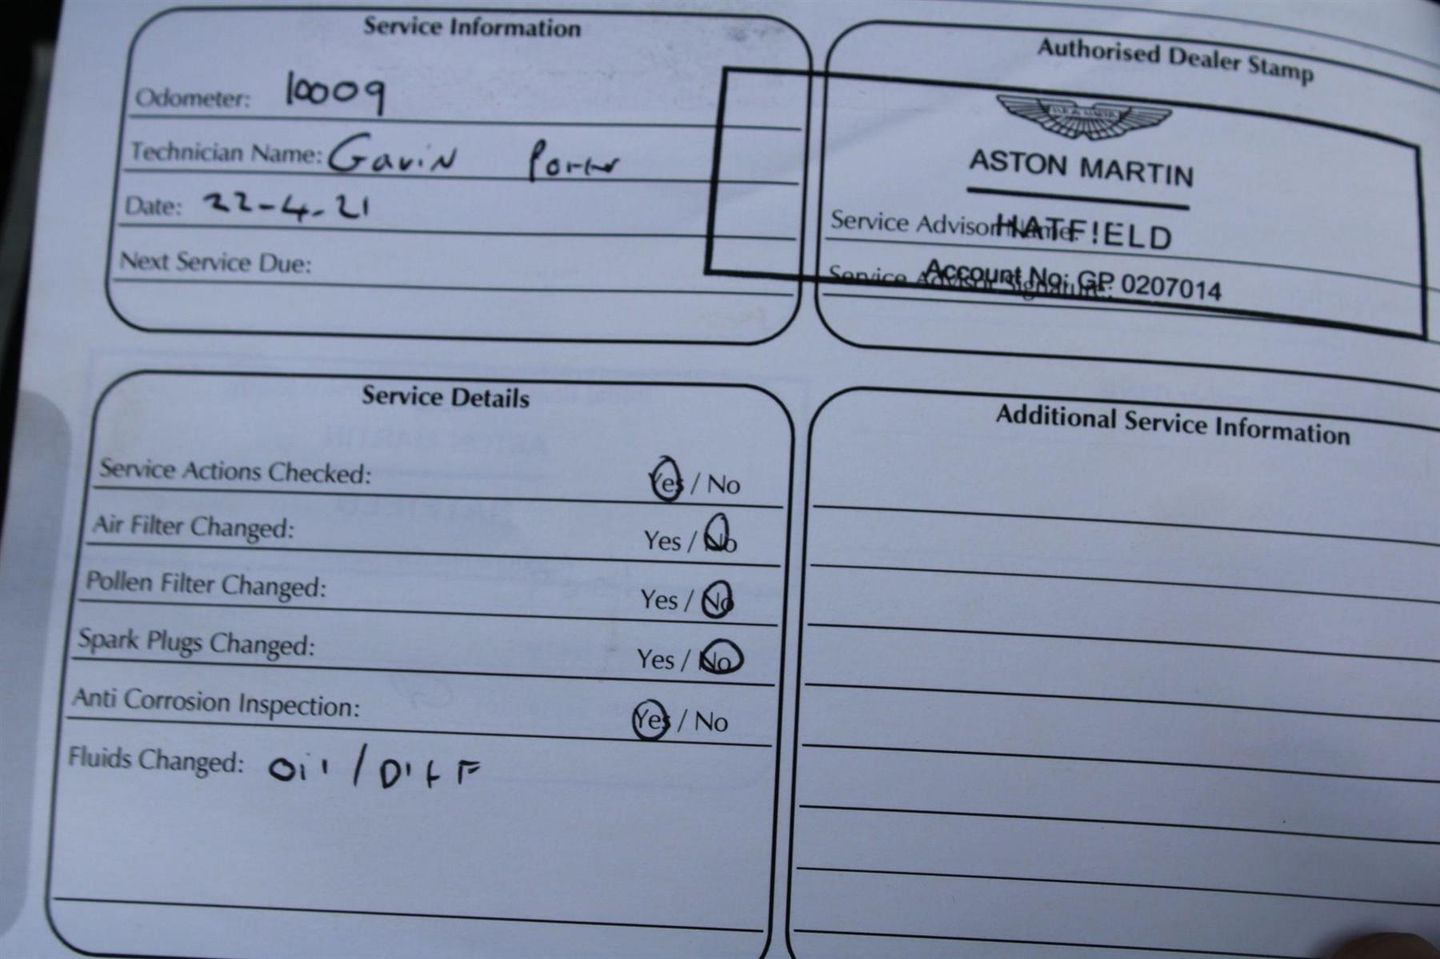 Service Information
Odometer: 10009
Technician Name: Gavin Porter
Date: 22-4-21
Next Service Due:
Authorised Dealer Stamp
ASTON MARTIN
HATFIELD
Service Advisor Name:
Account No: GP 0207014
Service Advisor Signature:
Service Details
Service Actions Checked: Yes / No
Air Filter Changed: Yes / No
Pollen Filter Changed: Yes / No
Spark Plugs Changed: Yes / No
Anti Corrosion Inspection: Yes / No
Fluids Changed: Oil / DIFF
Additional Service Information